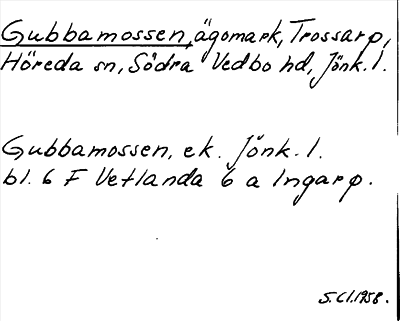 Gubbamossen, ägomark, Trossarp,
Höreda sn, Södra Vedbo hd, Jönk. l.
Gubbamossen, ek. Jönk. l.
bl. 6 F Vetlanda 6 a Ingarp.
S. Cl. 1958.